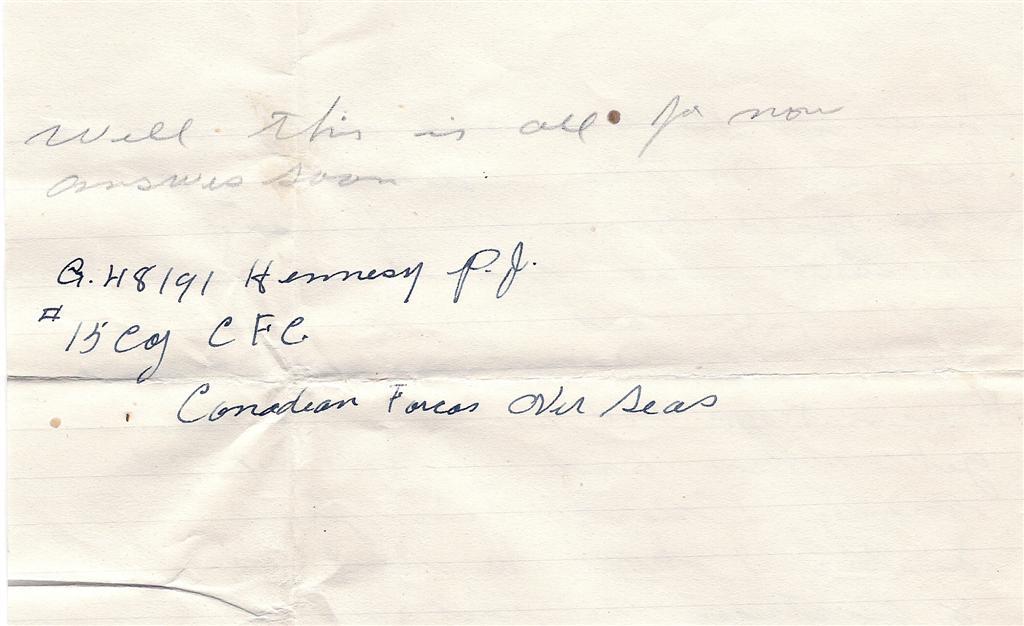 Well this is all for now
answer soon
G.48191 Hennesy P.J.
# 15 Coy C F C.
Canadian Forces Over Seas